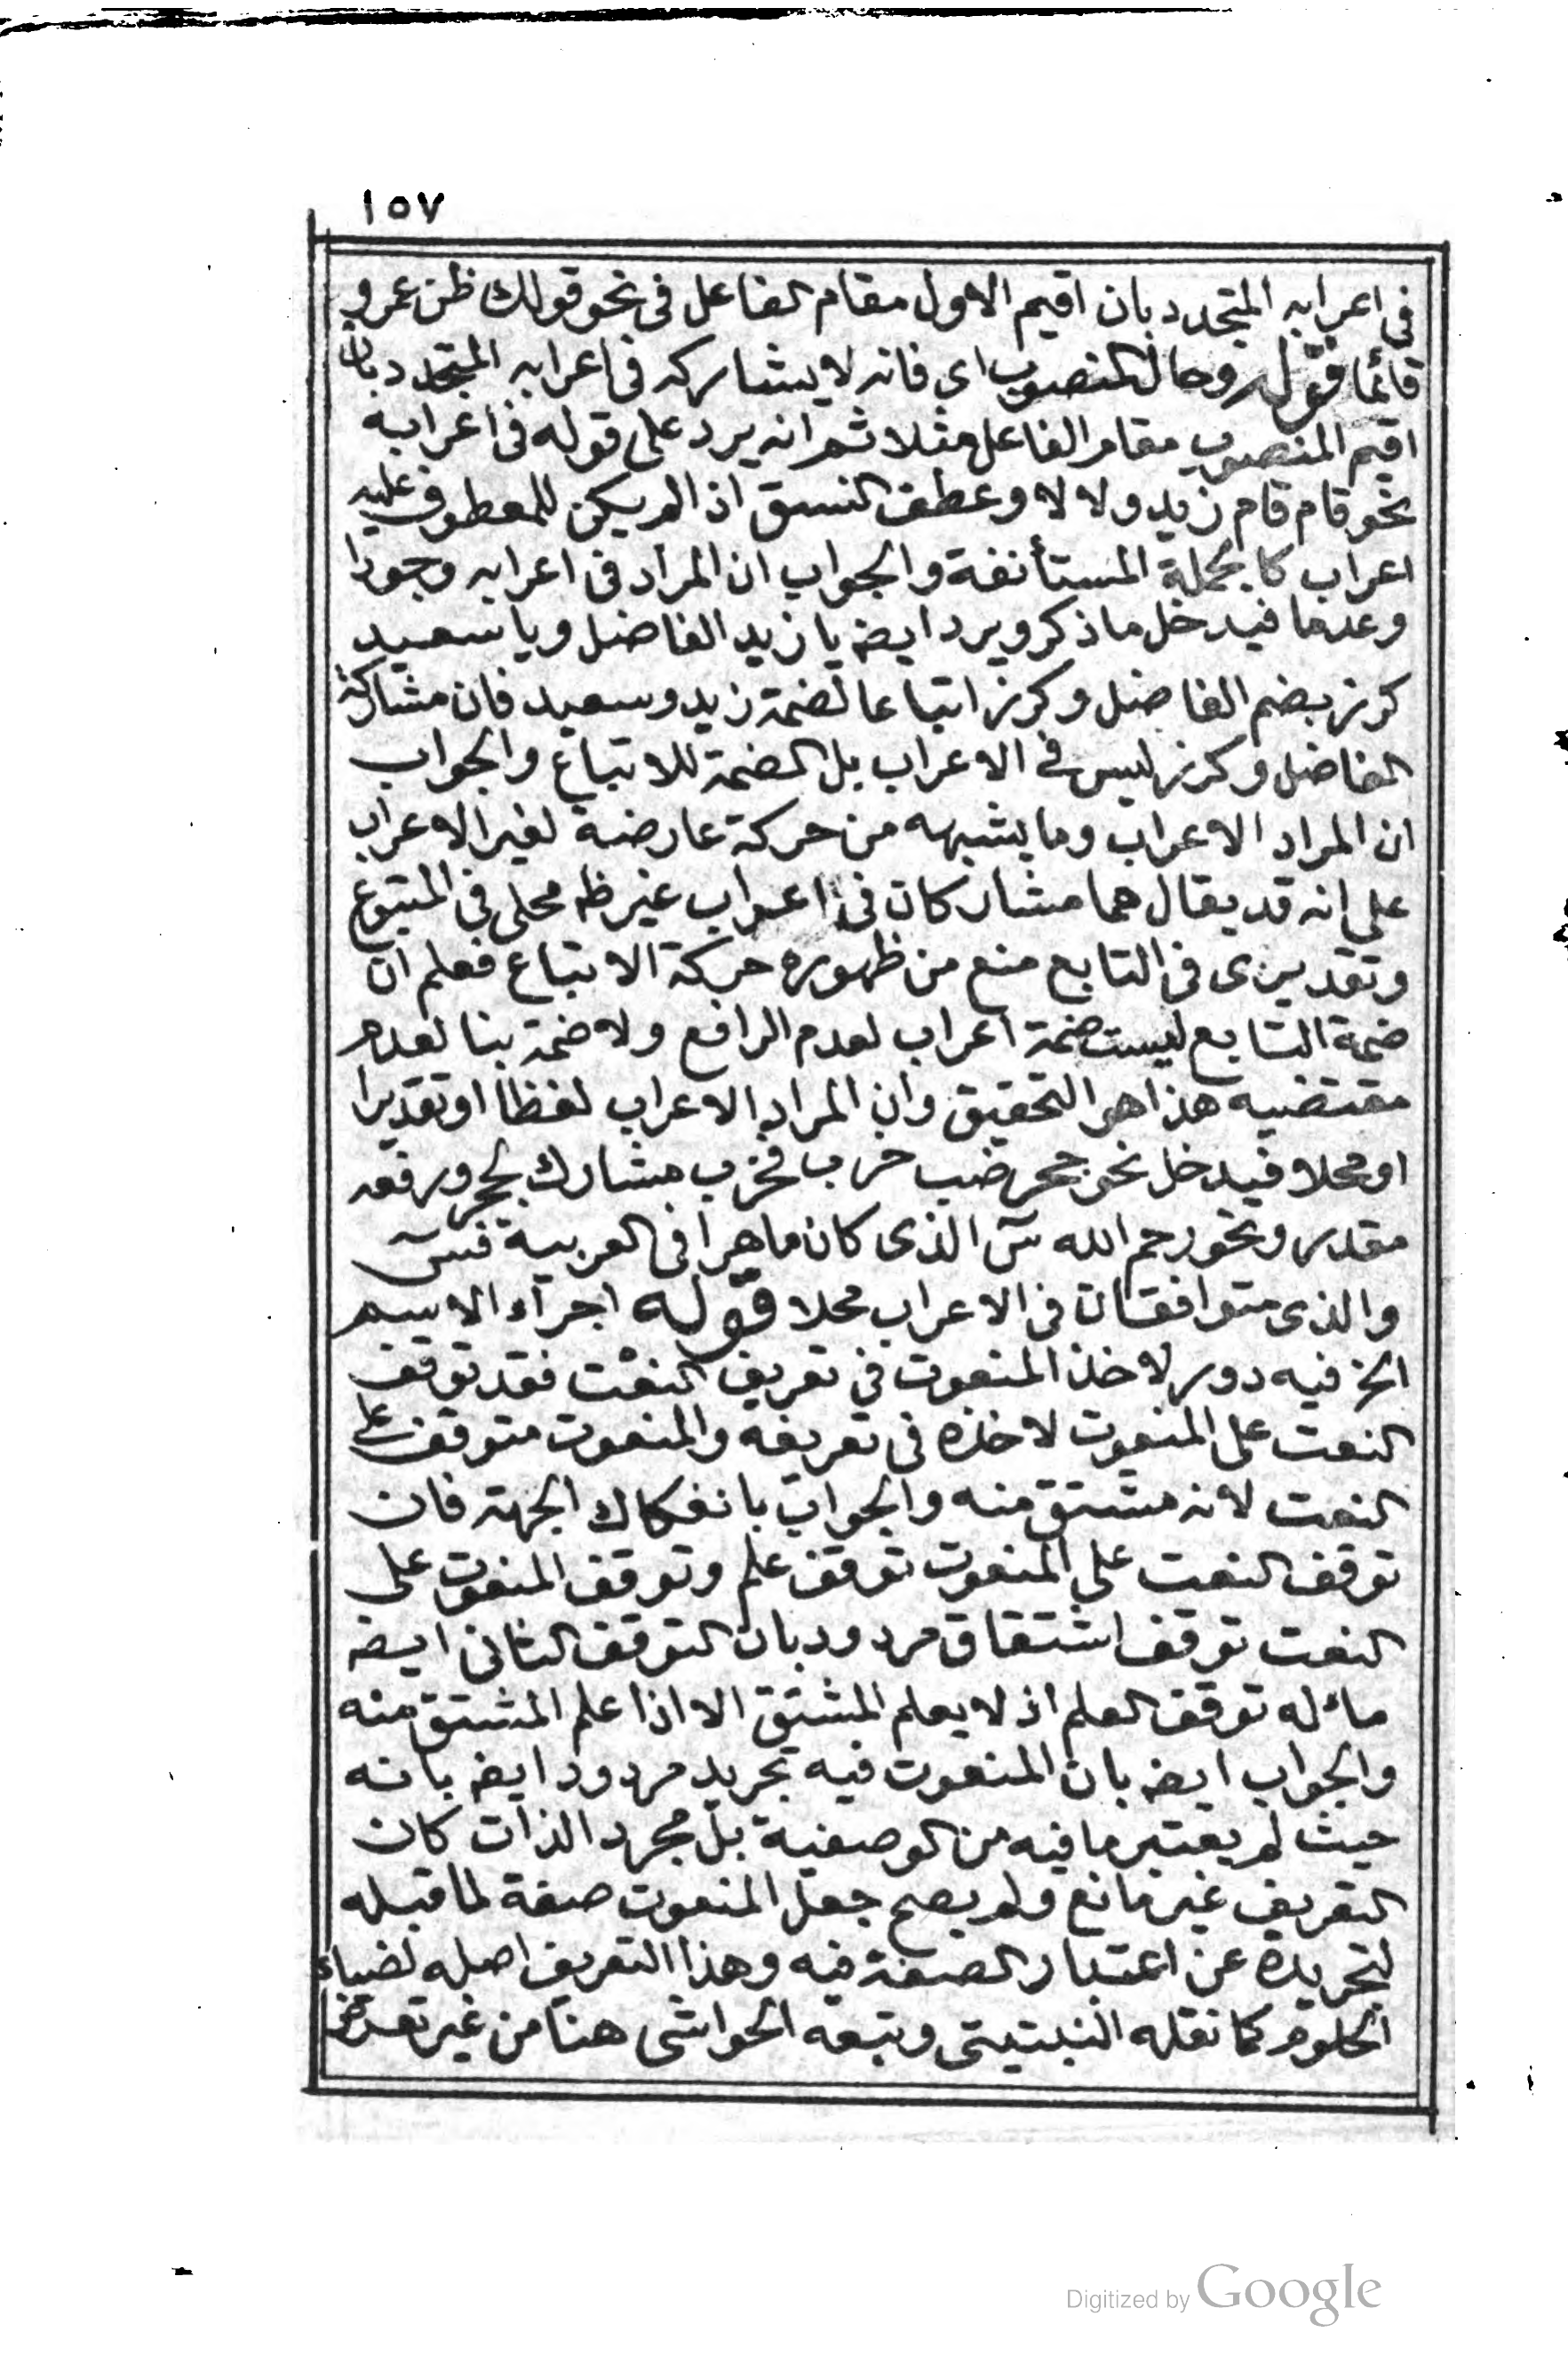 ١٥٧
فى اعرابه المتجدد بان اقيم الاول مقام الفاعل فى نحو قولك ظن عمرو
قائما قوله وحال المنصوب اى فانه لا يشاركه فى اعرابه المتجدد بان
اقيم المنصوب مقام الفاعل مثلا ثم انه يرد على قوله فى اعرابه
نحو قام قام زيد ولا لا وعطف النسق اذا لم يكن للمعطوف عليه
اعراب كالجملة المستأنفة والجواب ان المراد فى اعرابه وجودا
وعدما فيدخل ما ذكر ويرد ايضه يا زيد الفاضل ويا سعيد
كرز بضم الفاضل وكرز اتباعا لضمة زيد وسعيد فان مشاركة
الفاضل وكرز ليس فى الاعراب بل الضمة للاتباع والجواب
ان المراد الاعراب وما يشبهه من حركة عارضة لغير الاعراب
على انه قد يقال هما مشاركان فى اعراب غير ظه محلى فى المتبوع
وتقديرى فى التابع منع من ظهوره حركة الاتباع فعلم ان
ضمة التابع ليست ضمة اعراب لعدم الرافع ولا ضمة بنا لعدم
مقتضيه هذا هو التحقيق وان المراد الاعراب لفظا او تقديرا
او محلا فيدخل نحو جحر ضب خرب فخرب مشارك لجحر ورفعه
مقدر ونحو رحم الله سٓ الذى كان ماهرا فى العربية فسٓ
والذى متوافقان فى الاعراب محلا قوله اجراء الاسم
الخ فيه دور لاخذ المنعوت فى تعريف النعت فقد توقف
النعت على المنعوت لاخذه فى تعريفه والمنعوت متوقف على
النعت لانه مشتق منه والجواب بانفكاك الجهة فان
توقف النعت على المنعوت توقف علم وتوقف المنعوت على
النعت توقف اشتقاق مردود بان التوقف الثانى ايضه
مأله توقف العلم اذ لا يعلم المشتق الا اذا علم المشتق منه
والجواب ايضه بان المنعوت فيه تجريد مردود ايضه بانه
حيث لم يعتبر ما فيه من الوصفية بل مجرد الذات كان
التعريف غير مانع ولم يصح جعل المنعوت صفة لما قبله
لتجريده عن اعتبار الصفة فيه وهذا التعريف اصله لضياء
الحلوم كما نقله النبتيتى وتبعه الحواشى هنا من غير تعرض
Digitized by Google